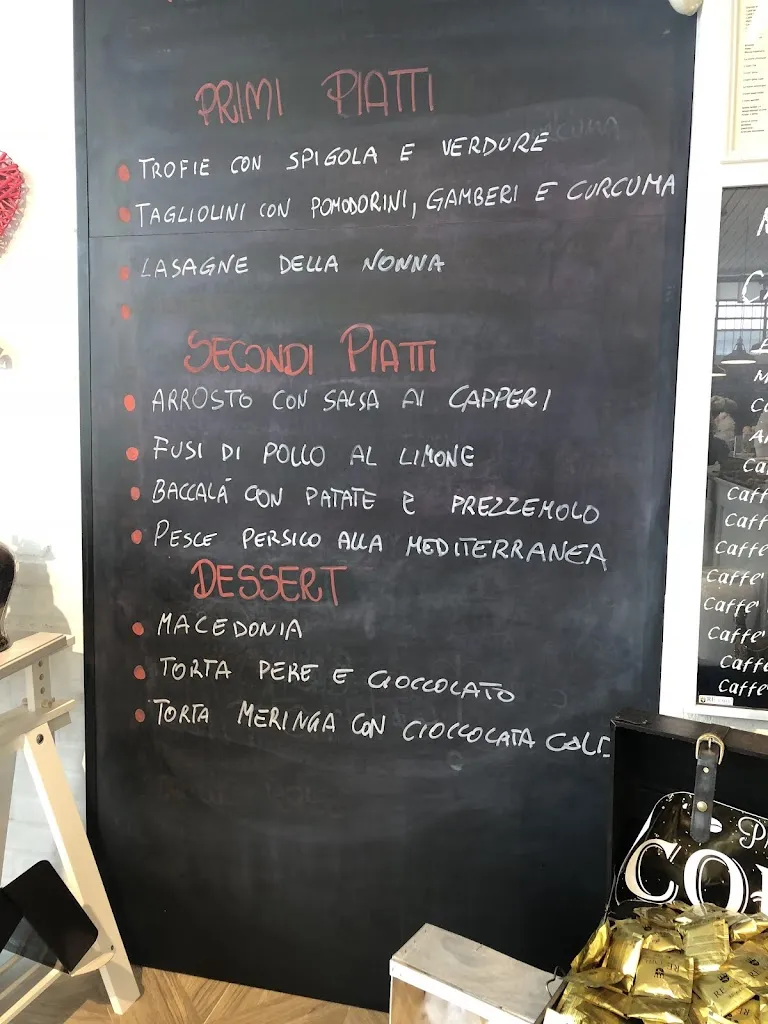 PRIMI PIATTI
TROFIE CON SPIGOLA E VERDURE
TAGLIOLINI CON POMODORINI, GAMBERI E CURCUMA
LASAGNE DELLA NONNA
SECONDI PIATTI
ARROSTO CON SALSA AI CAPPERI
FUSI DI POLLO AL LIMONE
BACCALÁ CON PATATE E PREZZEMOLO
PESCE PERSICO ALLA MEDITERRANEA
DESSERT
MACEDONIA
TORTA PERE E CIOCCOLATO
TORTA MERINGA CON CIOCCOLATA CALD
Caff
Caff
Caffe'
Caffe'
Caffe'
Caffe'
Caffe
Caffe'
CO